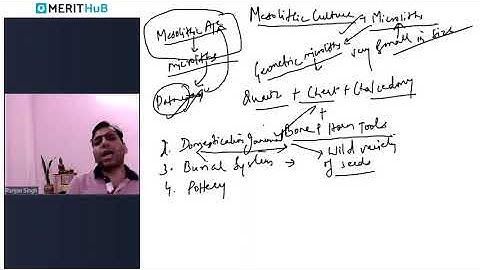 MERITHUB
Mesolithic Age
Microliths
Mesolithic Culture
Microliths
Geometric microliths
very small in size
Quartz + Chert + Chalcedony
+
2. Domestication of animal
Bone & Horn Tools
3. Burial System →
Wild variety of seeds
4. Pottery
Ranjan Singh